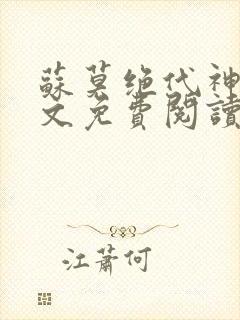 蘇莫绝代神
文免費閱讀
江蕭何